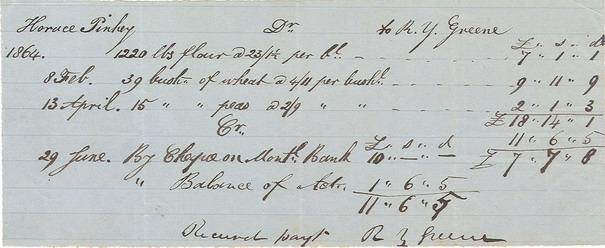 Horace Pinhey Dr. to R. Y. Greene
1864. £ " s " d
1220 lbs flour @ 23/1½ per bl. 7 " 1 " 1
8 Feb. 39 bush. of wheat @ 4/11 per bushl. 9 " 11 " 9
13 April. 15 " " peas @ 2/9 " " 2 " 1 " 3
Cr. £ 18 " 14 " 1
£ " s " d 11 " 6 " 5
29 June. By Cheque on Montl. Bank 10 " — " — £ 7 " 7 " 8
" Balance of Act. 1 " 6 " 5
11 " 6 " 5
Received payt R Y Greene